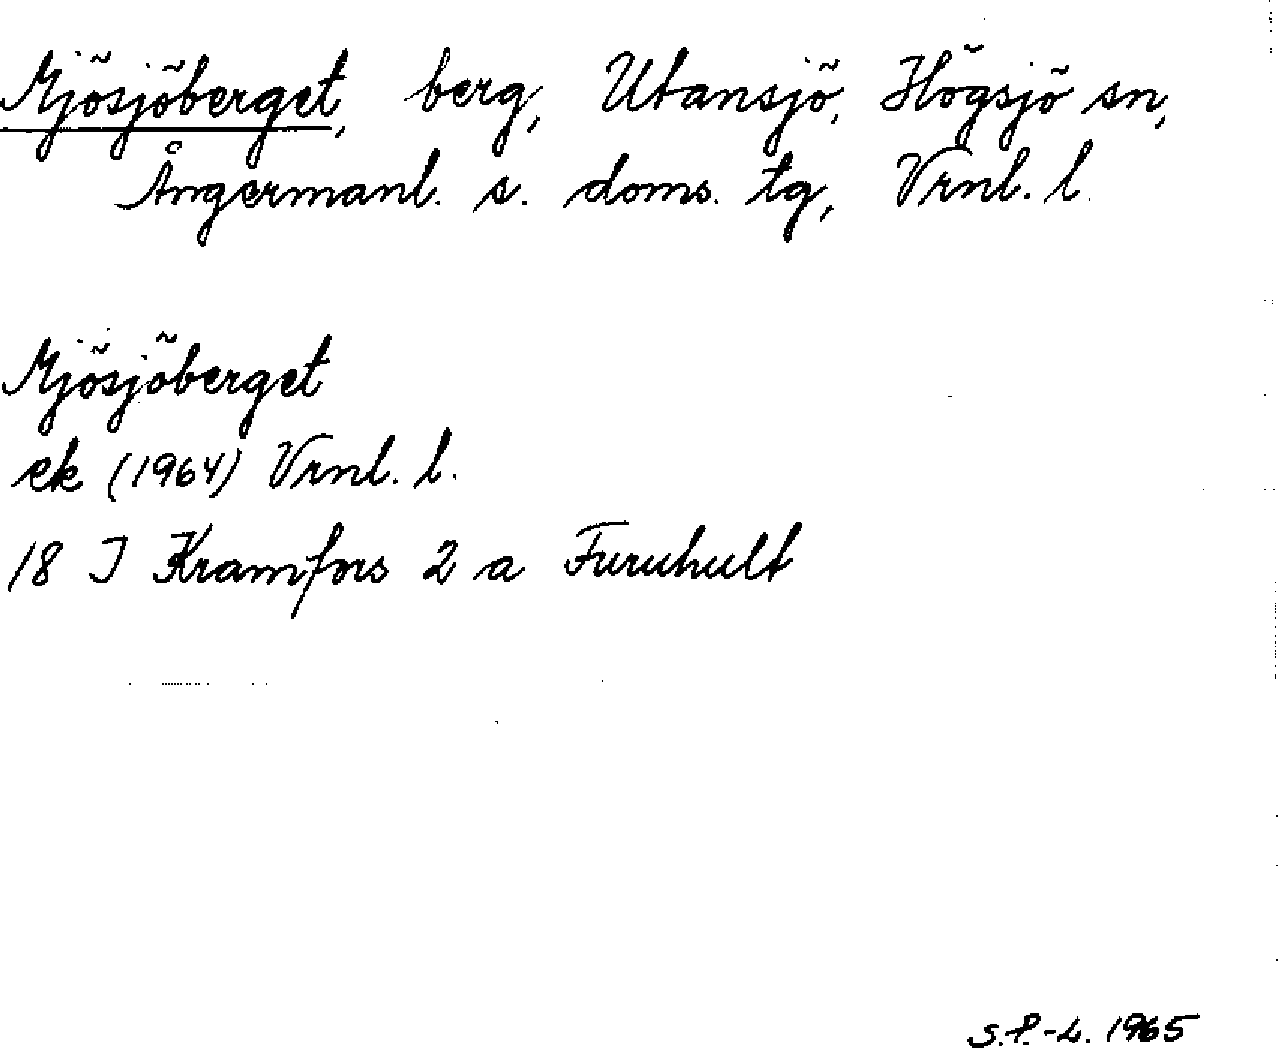 Mjösjöberget, berg, Utansjö, Högsjö sn,
Ångermanl. s. doms. tg, Vrnl. l.
Mjösjöberget
ek (1964) Vrnl. l.
18 I Kramfors 2 a Furuhult
S.P.-L. 1965